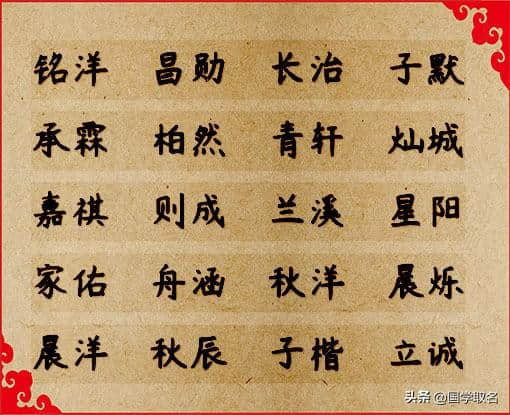 铭洋 昌勋 长治 子默
承霖 柏然 青轩 灿城
嘉祺 则成 兰溪 星阳
家佑 舟涵 秋洋 晨烁
晨洋 秋辰 子楷 立诚
头条 @国学取名